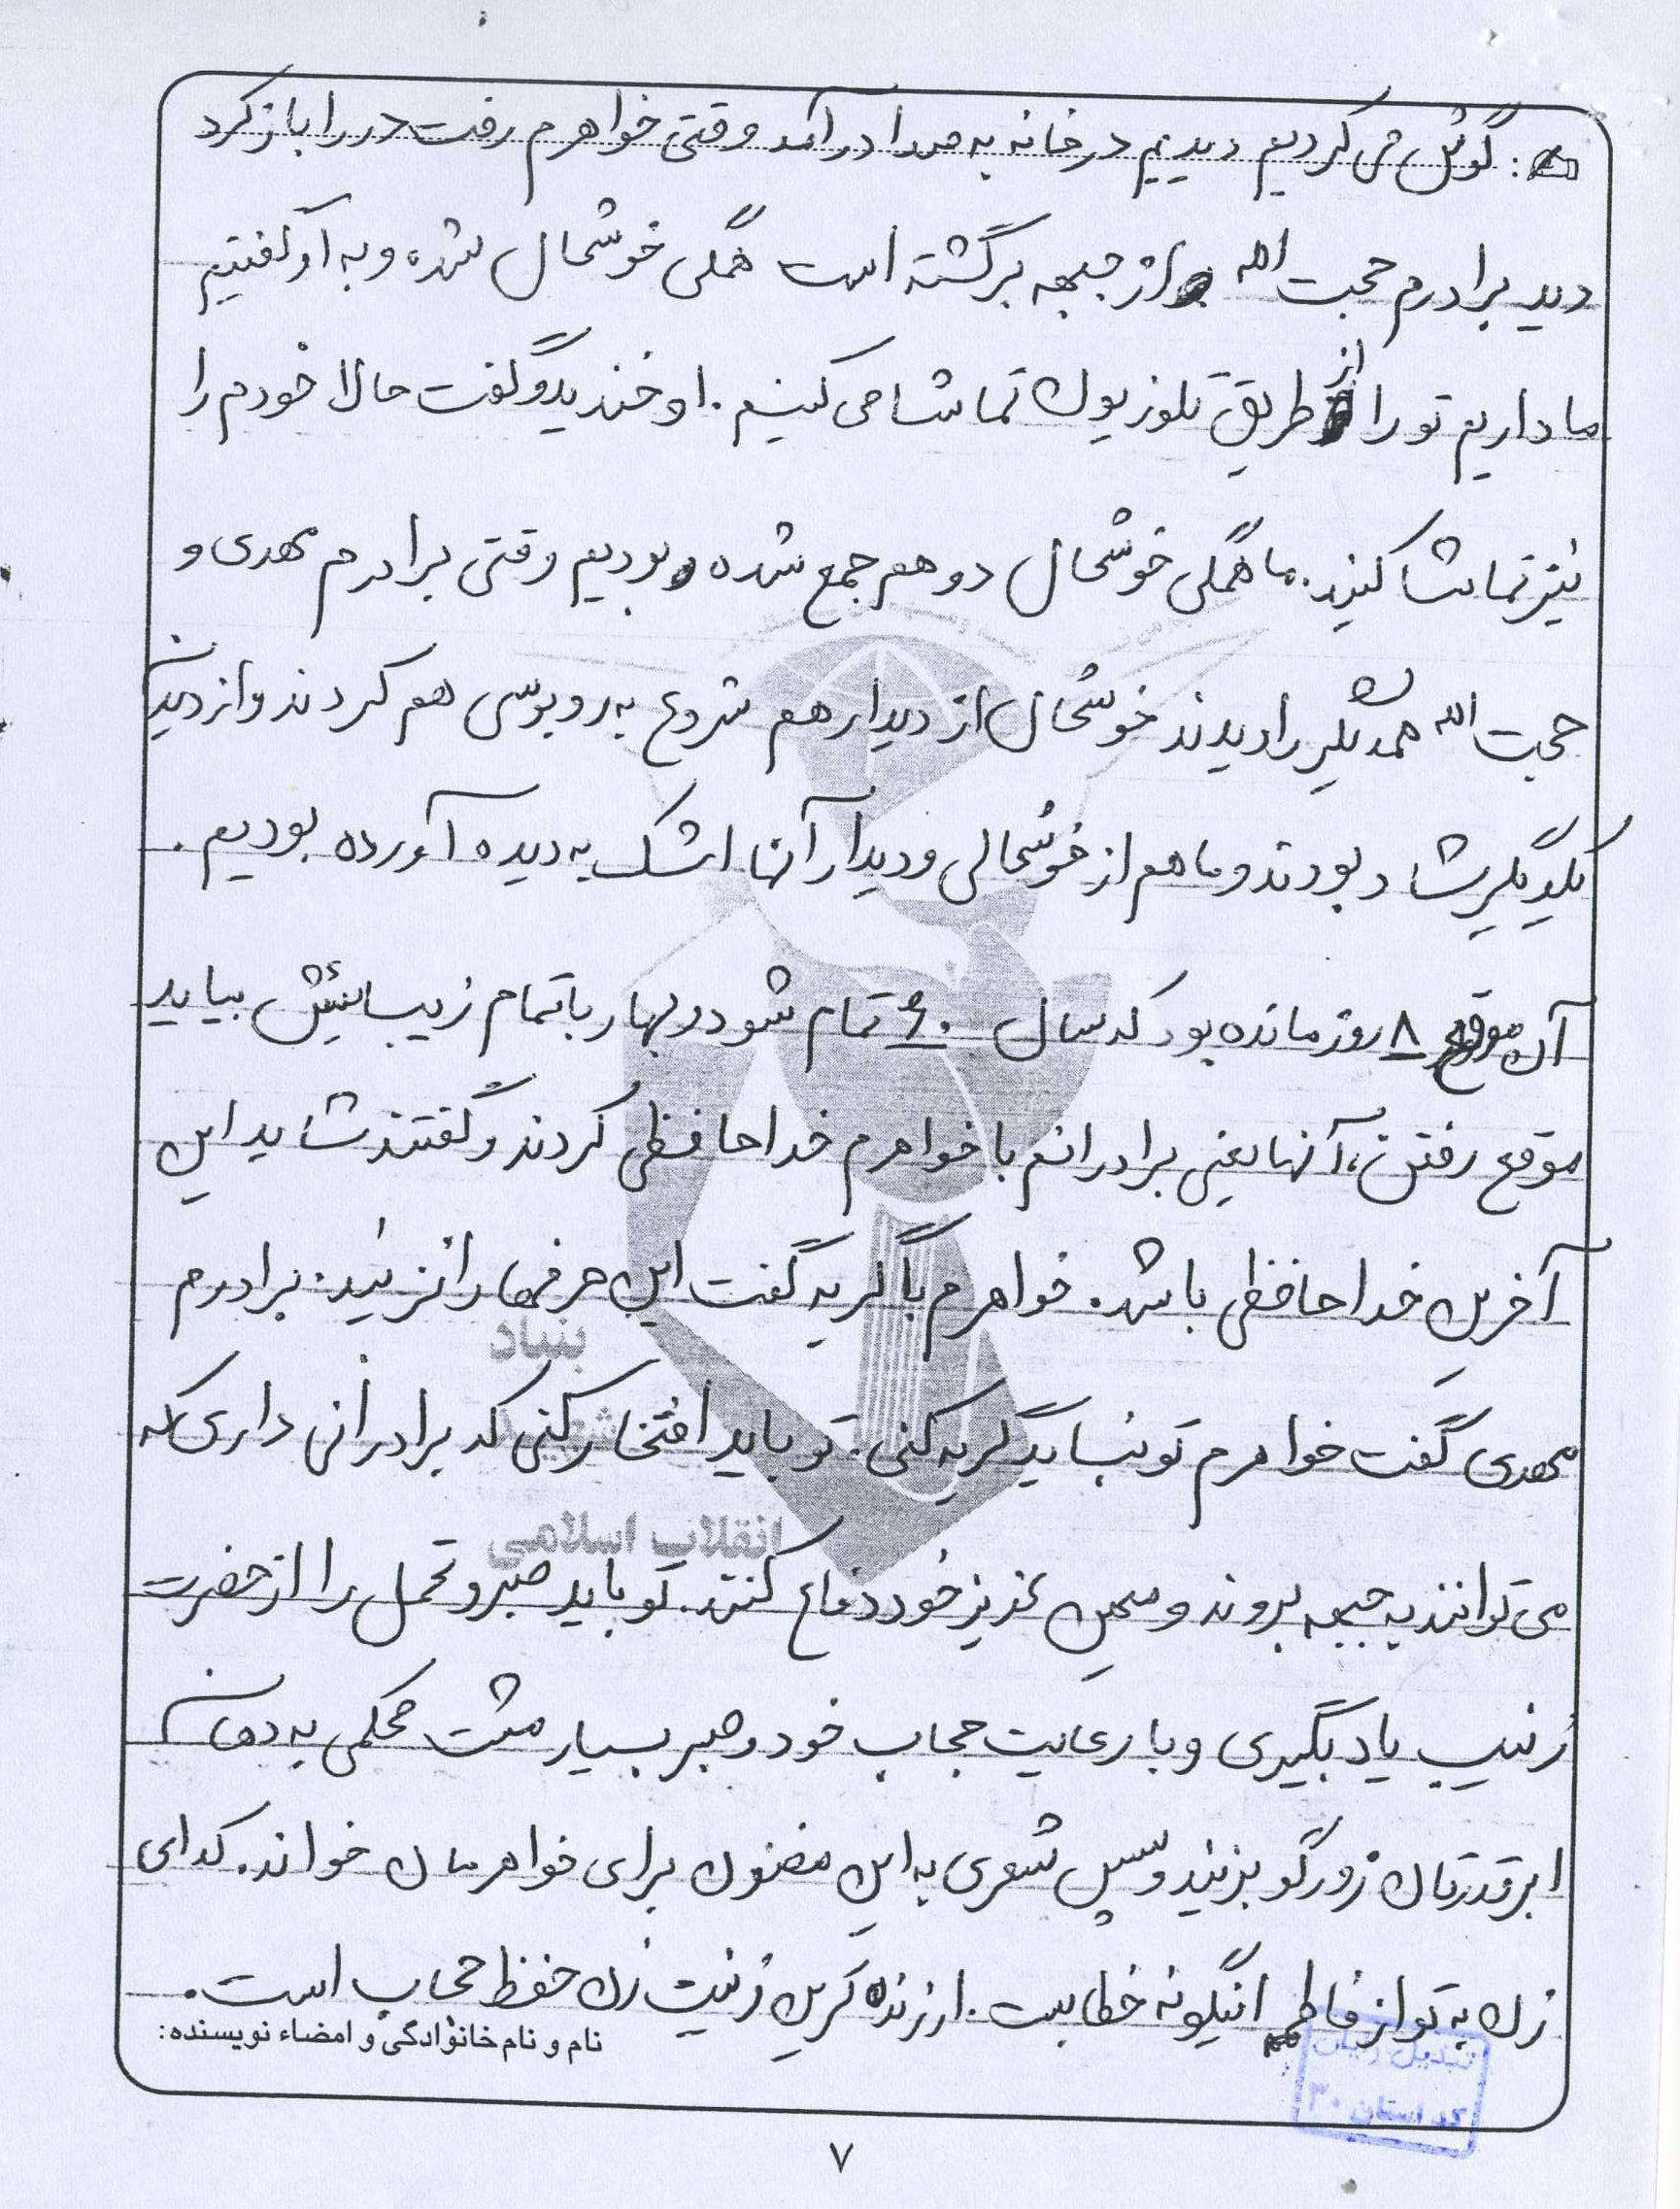 گوش می کردیم دیدیم درخانه به صدا درآمد وقتی خواهرم رفت در را باز کرد
دید برادرم حجت الله از جبهه برگشته است همگی خوشحال شده و به او گفتیم
ما داریم تو را از طریق تلوزیون تماشا می کنیم. او خندید و گفت حالا خودم را
نیز تماشا کنید. ما همگی خوشحال دور هم جمع شده بودیم وقتی برادرم مهدی و
حجت الله همدیگر را دیدند خوشحال از دیدار هم شروع به روبوسی هم کردند و از دیدن
یکدیگر شاد بودند و ما هم از خوشحالی و دیدار آنها اشک به دیده آورده بودیم.
آن موقع ۸ روز مانده بود که سال ۶۰ تمام شود و بهار با تمام زیبائیش بیاید
موقع رفتن، آنها یعنی برادرانم با خواهرم خداحافظی کردند و گفتند شاید این
آخرین خداحافظی باشد. خواهرم با گریه گفت این حرفها را نزنید. برادرم
مهدی گفت خواهرم تو نباید گریه کنی. تو باید افتخار کنی که برادرانی داری که
می توانند به جبهه بروند و میهن عزیز خود دفاع کنند. تو باید صبر و تحمل را از حضرت
زینب یاد بگیری و با رعایت حجاب خود و صبر بسیار مشت محکمی به دهان
ابرقدرتان زورگو بزنید و سپس شعری به این مضنون برای خواهرمان خواند. که ای
زن به تو از فاطمه اینگونه خطابست. ارزنده ترین زینت زن حفظ حجاب است.
نام و نام خانوادگی و امضاء نویسنده:
بنیاد
شهید
انقلاب اسلامی
۷